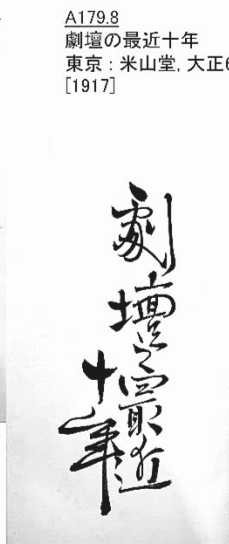 A179.8
劇壇の最近十年
東京 : 米山堂, 大正6
[1917]
劇壇之最近
十年